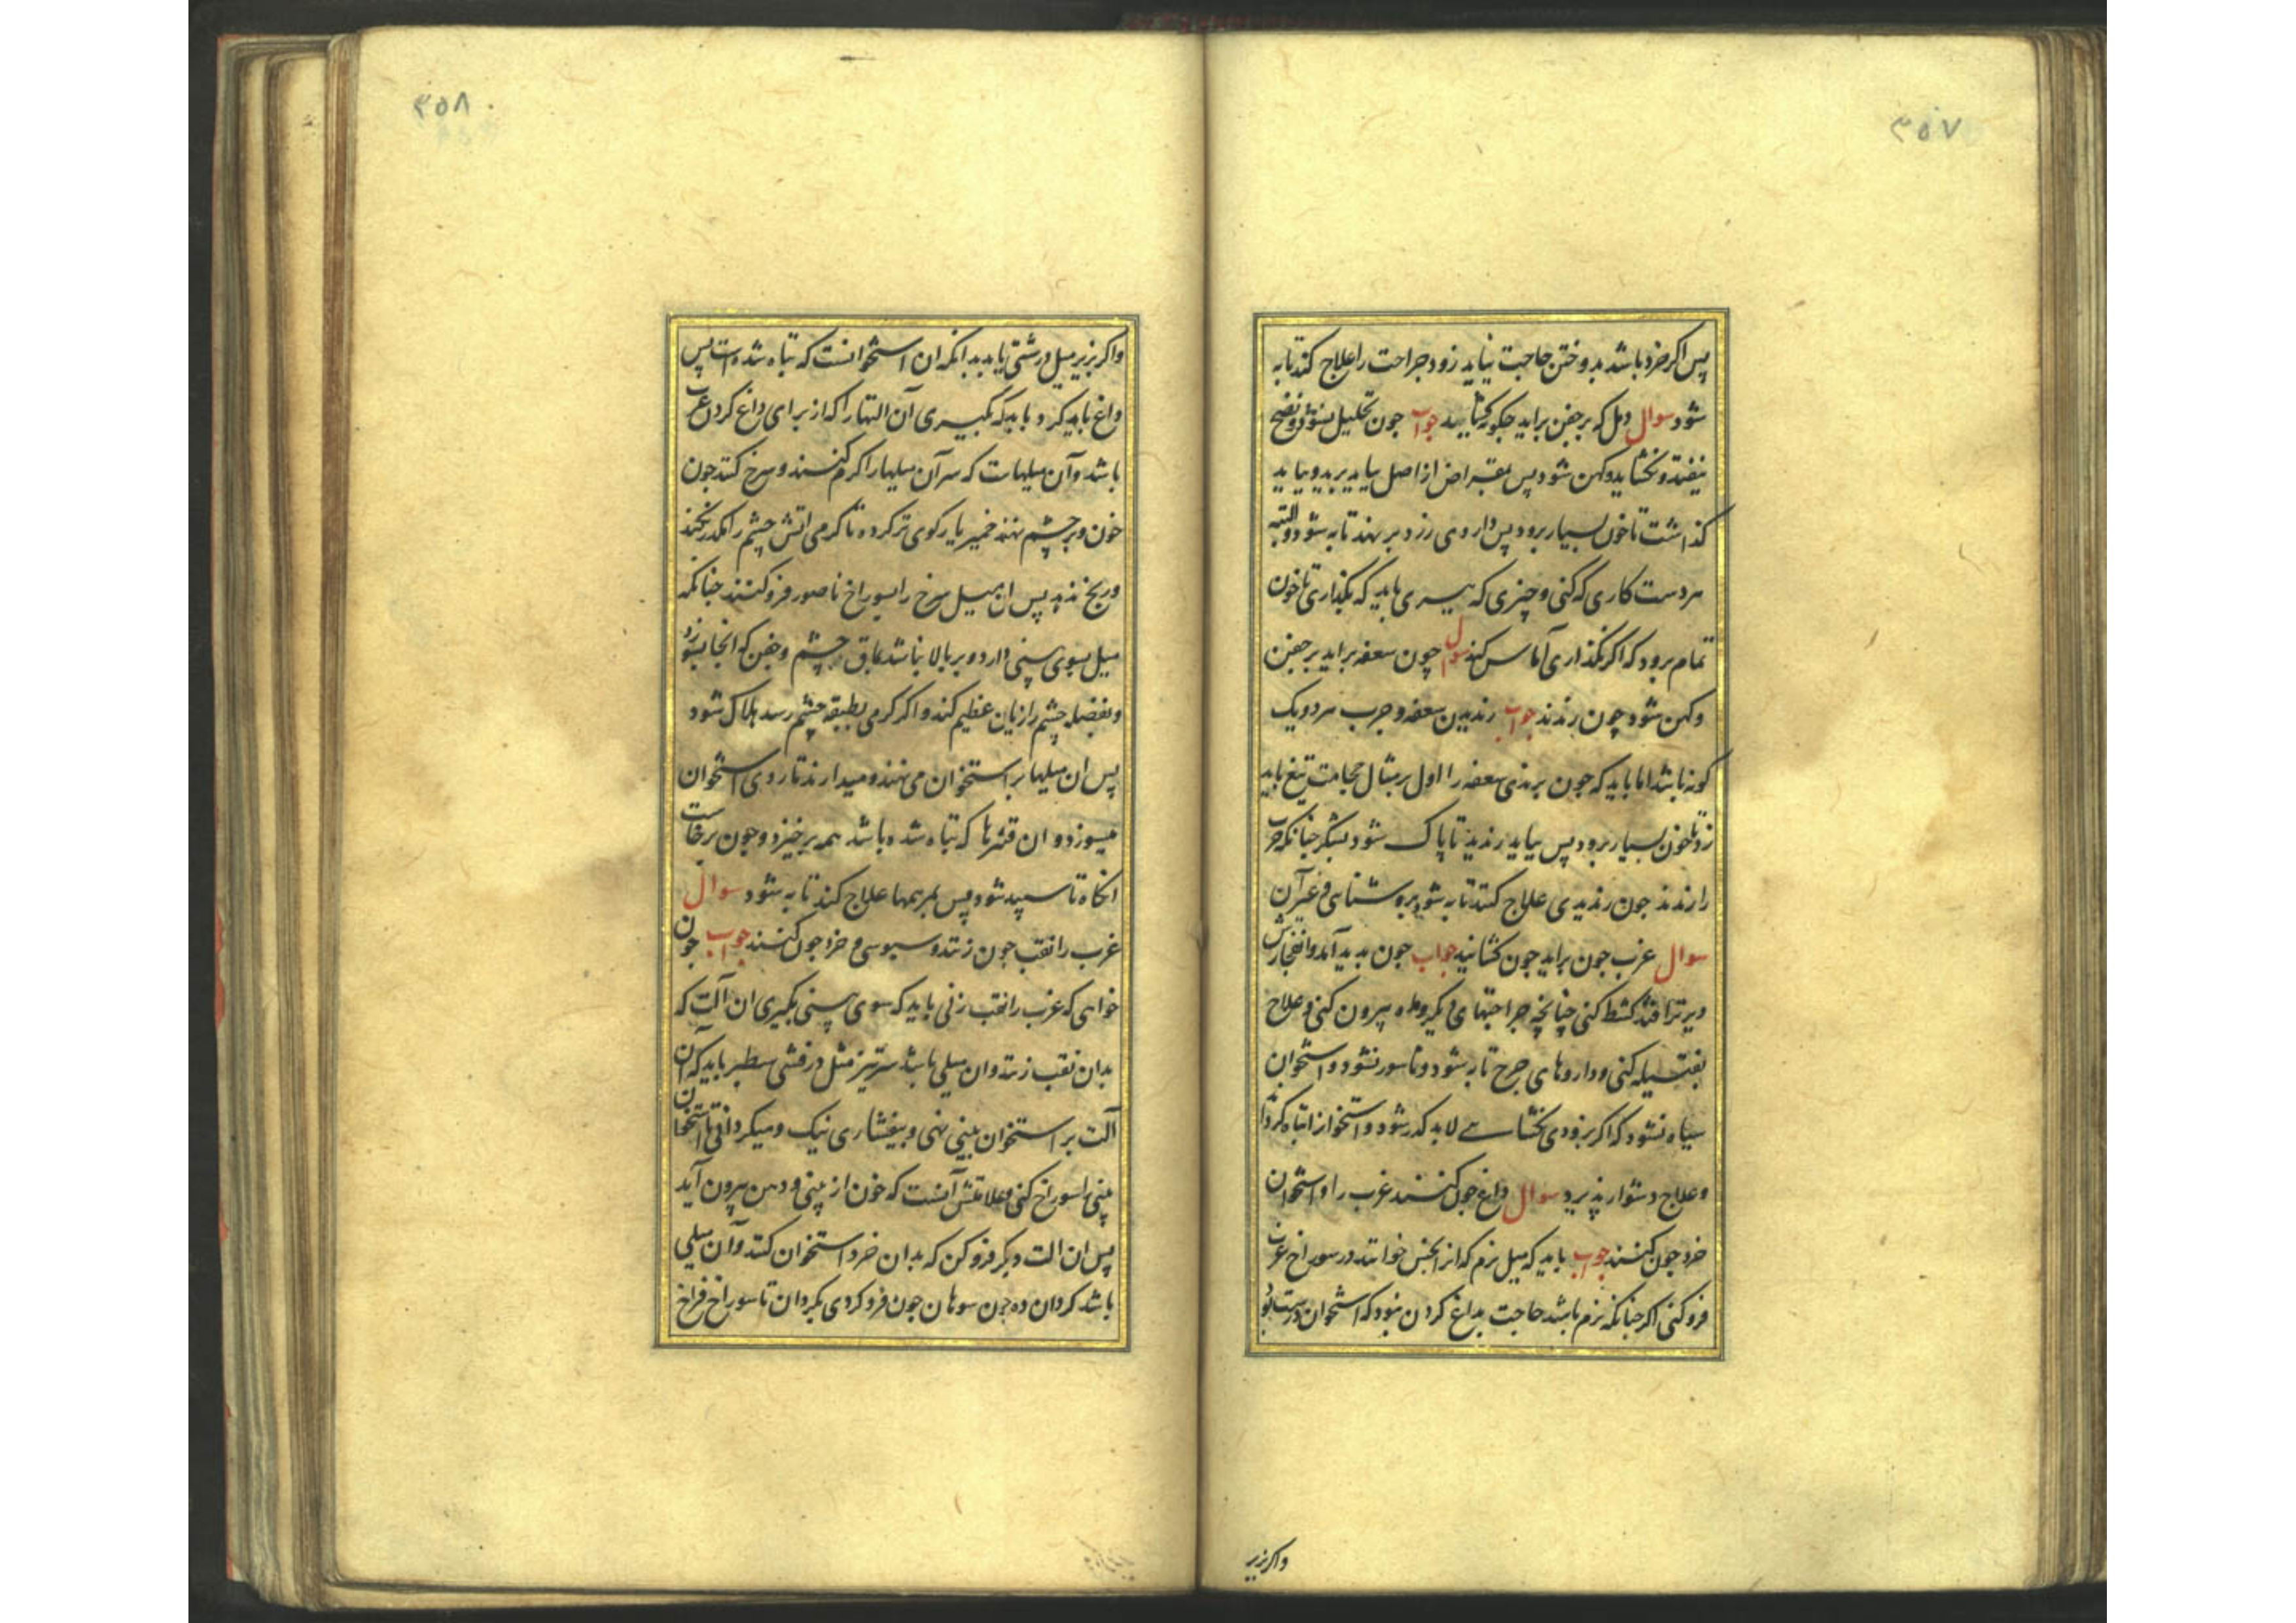 ۳۵۷
پس اکر خرد باشد بدوختن حاجت نیاید زود جراحت را علاج کند تا به
شود سوال دمل که بر جفن براید چکونه کشایند جواب جون تحلیل نشود و نضج
نیفتد و نکشاید و کهن شود پس بمقراض از اصل بباید برید و بباید
کذاشت تا خون بسیار برود پس داروی زرد بر نهند تا به شود و البته
هر دست کاری که کنی و چیزی که ببری باید که بکذاری تا خون
تمام برود که اکر نکذاری آماس کند سوال چون سعفه براید بر جفن
و کهن شود چون رندند جواب رندیدن سعفه و جرب هر دو یک
کونه باشد اما باید که جون برندی سعفه را اول بر مثال حجامت تیغ باید
زد تا خون بسیار برود پس بباید رندید تا پاک شود بشکر چنانکه جرب
را رندند جون رندیدی علاج کنند تا به شود بروشنایی و غیر آن
سوال غرب جون براید جون کشایند جواب جون بدید آمد و انفجارش
دیرتر افتد کشط کنی چنانچه جراحتهای دیکر و بیرون کنی و علاج
بفتیله کنی و داروهای جرح تا به شود و ناسور نشود و استخوان
سیاه نشود که اکر بزودی نکشایی لابد کدر شود و استخوانرا تباه کرداند
و علاج دشوار پذیرد سوال داغ جون کنند غرب را و استخوان
خرد جون کنند جواب باید که میل نرم که انرا مجس خوانند در سوراخ غرب
فرو کنی اکر چنانکه نرم باشد حاجت بداغ کردن نبود که استخوان درست بود
واکر بزیر
۳۵۸
واکر بزیر میل درشتی یابد بدانکه ان استخوانست که تباه شده است پس
داغ باید کرد و باید که بکیری آن التها را که از برای داغ کردن غرب
باشد و آن میلهاست که سر آن میلها را کرم کنند و سرخ کنند جون
خون و بر چشم نهند خمیر یا رکوی تر کرده تا کرمی اتش چشم را مکدر نکند
و رنج ندهد پس ان میل سرخ را بسوراخ ناصور فرو کنند چنانکه
میل بسوی بینی دارد و بر بالا نباشد بماق چشم و جفن که انجا بسوزد
و بعضله چشم را زیان عظیم کند و اکر کرمی بطبقه چشم رسد هلاک شود
پس ان میلها بر استخوان می نهند و میدارند تا روی استخوان
میسوزد و ان قشرها که تباه شده باشد همه بر خیزد و جون برخاست
انکاه تا سپید شود پس بمرهمها علاج کند تا به شود سوال
غرب را نقب جون زنند و سوی خرد جون کنند جواب جون
خواهی که غرب را نقب زنی باید که سوی بینی بکیری ان آلت که
بدان نقب زنند و ان میلی باشد سرتیز مثل درفشی سطبر باید که آن
آلت بر استخوان بینی نهی و بیفشاری نیک و میکردانی تا استخوان
بینی را سوراخ کنی و علامتش آنست که خون از بینی و دهن بیرون آید
پس ان الت دیکر فرو کن که بدان خرد استخوان کنند و آن میلی
باشد کردان ده جون سوهان جون فرو کردی بکردان تا سوراخ فراخ